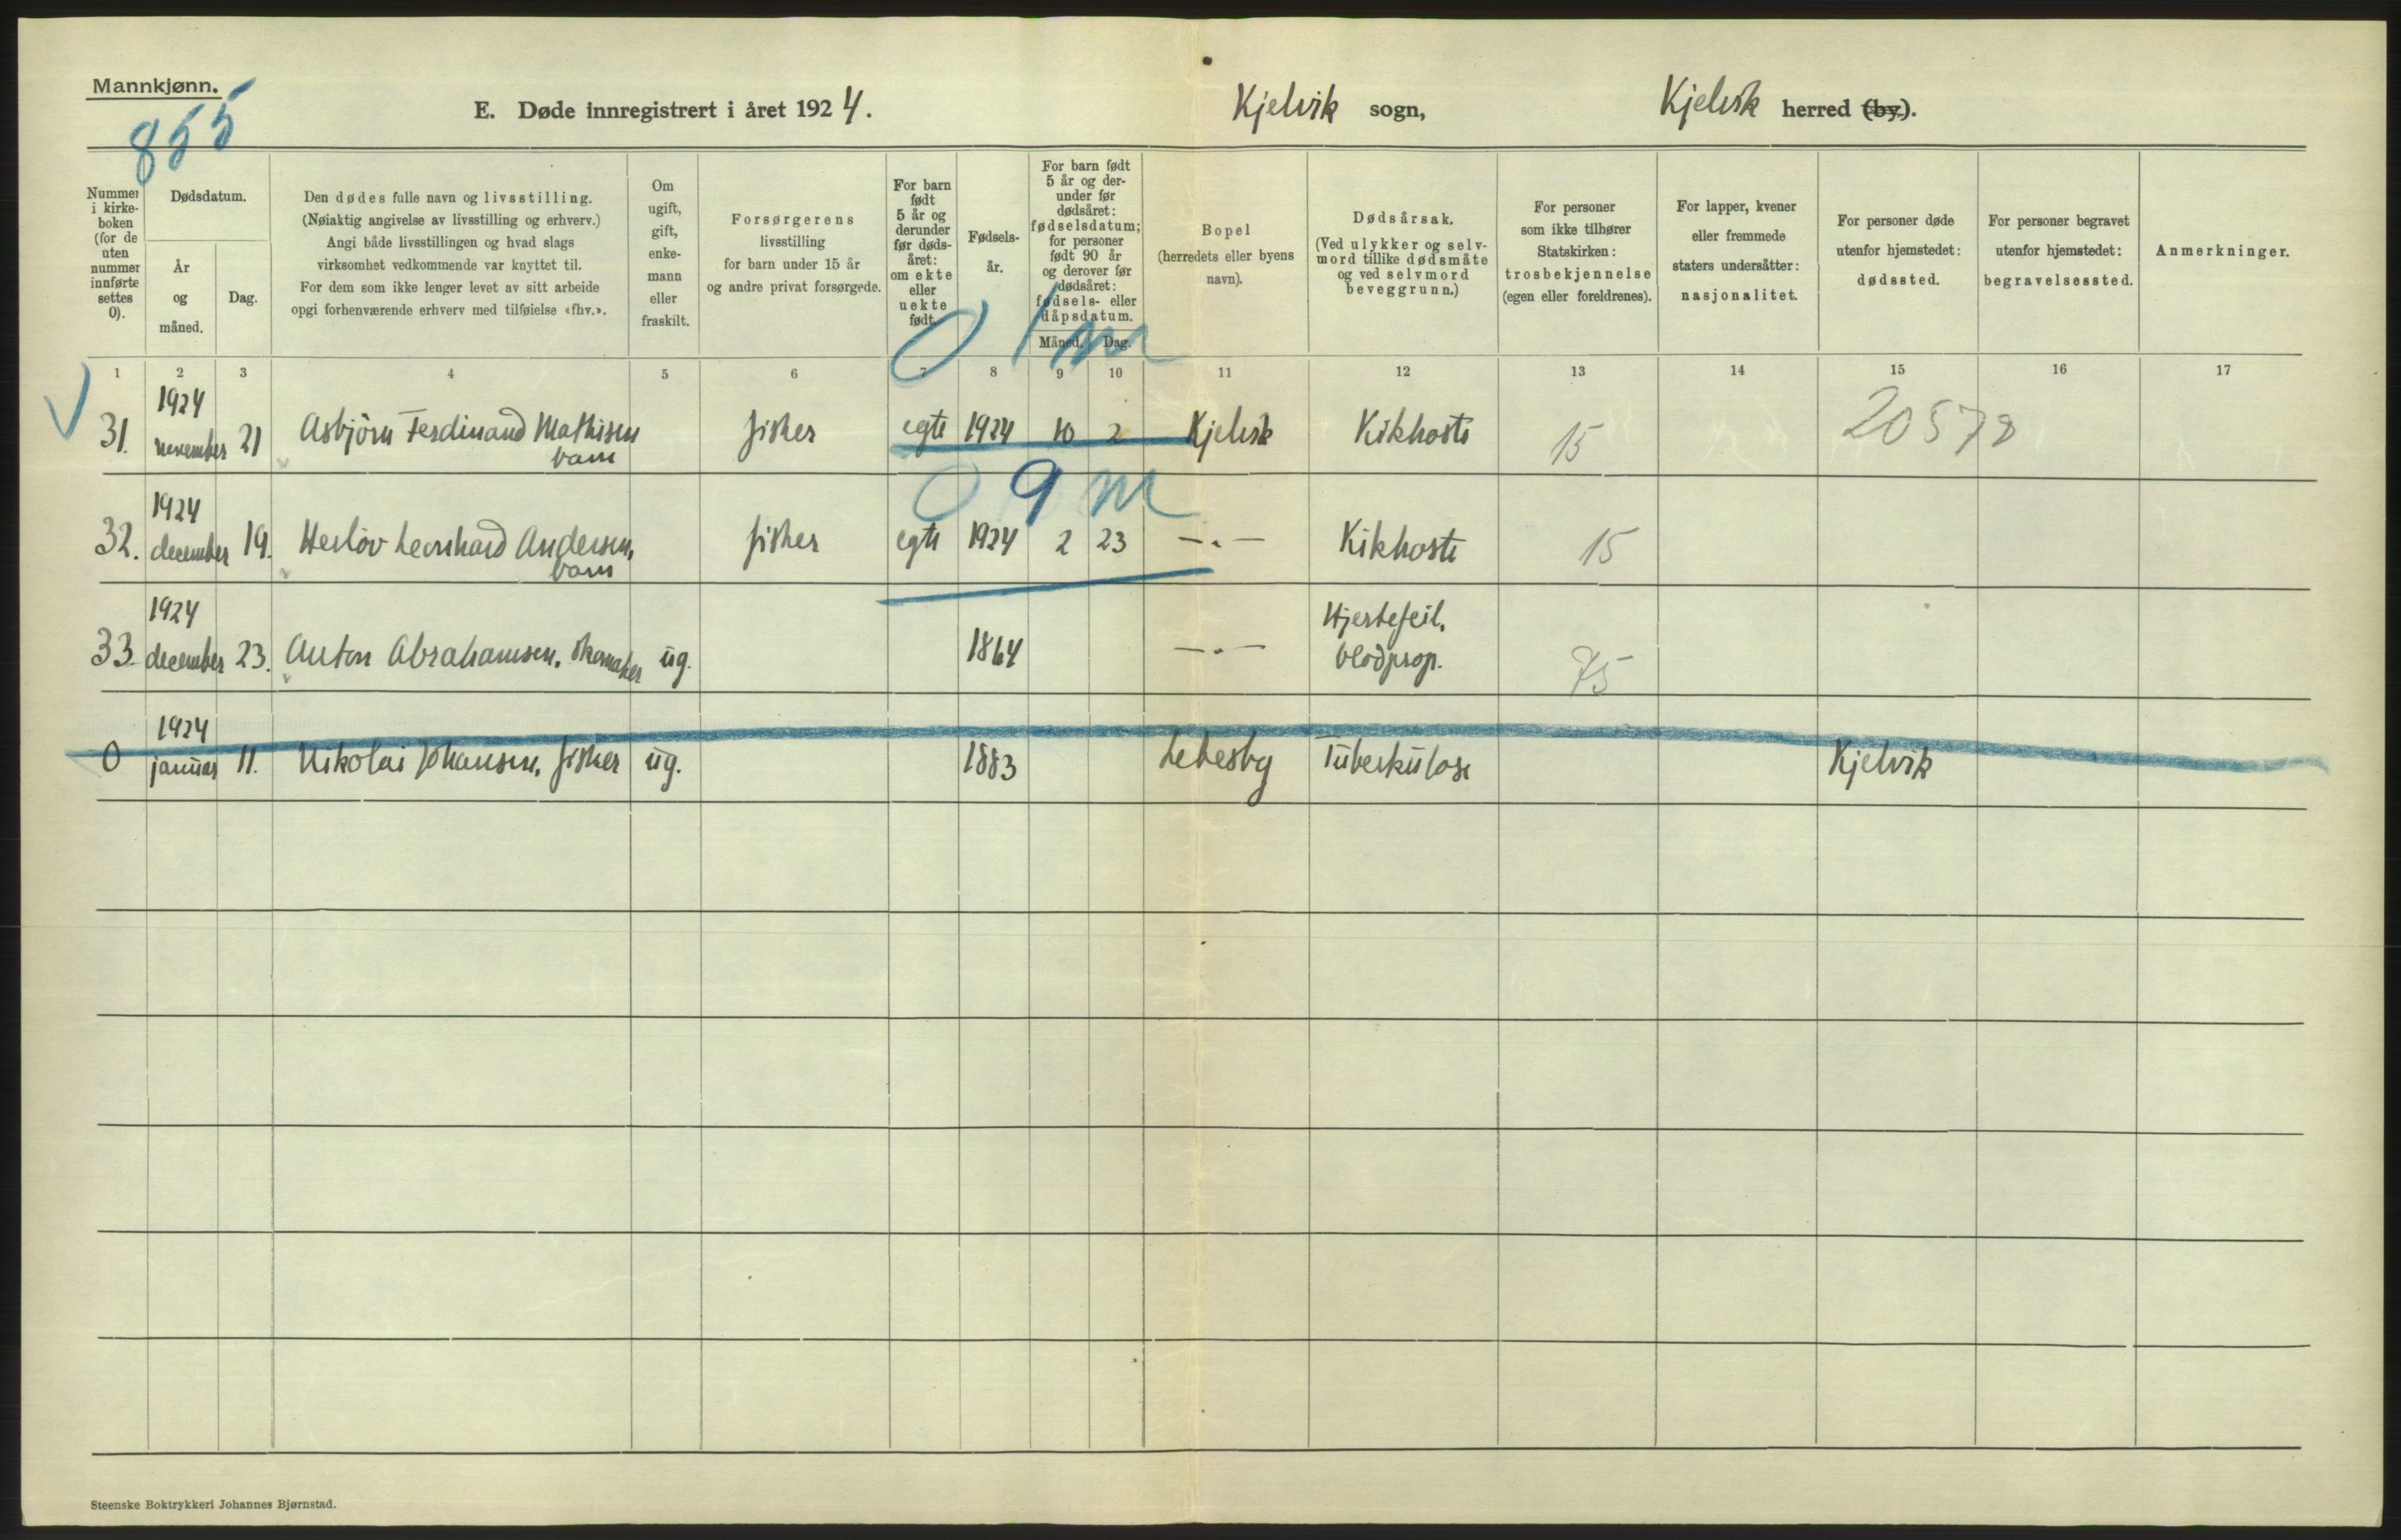 Mannkjønn.
855
E. Døde innregistrert i året 1924.
Kjelvik sogn,
Kjelvik herred (by).
Nummer i kirke-boken (for de uten nummer innførte settes 0).
Dødsdatum.
År og måned.
Dag.
Den dødes fulle navn og livsstilling.
(Nøiaktig angivelse av livsstilling og erhverv.)
Angi både livsstillingen og hvad slags
virksomhet vedkommende var knyttet til.
For dem som ikke lenger levet av sitt arbeide
opgi forhenværende erhverv med tilføielse «fhv.».
Om ugift, gift, enke-mann eller fraskilt.
Forsørgerens
livsstilling
for barn under 15 år
og andre privat forsørgede.
For barn født 5 år og derunder før døds-året: om ekte eller uekte født.
Fødsels-år.
For barn født 5 år og der-under før dødsåret: fødselsdatum; for personer født 90 år og derover før dødsåret: fødsels- eller dåpsdatum.
Måned. Dag.
Bopel
(herredets eller byens
navn).
Dødsårsak.
(Ved ulykker og selv-
mord tillike dødsmåte
og ved selvmord
beveggrunn.)
For personer
som ikke tilhører
Statskirken:
trosbekjennelse
(egen eller foreldrenes).
For lapper, kvener
eller fremmede
staters undersåtter:
nasjonalitet.
For personer døde
utenfor hjemstedet:
dødssted.
For personer begravet
utenfor hjemstedet:
begravelsessted.
Anmerkninger.
0 1 m
1 2 3 4 5 6 7 8 9 10 11 12 13 14 15 16 17
31. 1924 november 21 Asbjörn Ferdinand Mathisen barn fisker egte 1924 10 2 Kjelvik Kikhoste 15 20578
0 9 m
32. 1924 december 19. Herlöv Leonhard Andersen, barn fisker egte 1924 2 23 —〃— Kikhoste 15
33. 1924 december 23. Anton Abrahamsen, skomaker ug. 1864 —〃— Hjertefeil, blodprop. 75
0 1924 januar 11. Nikolai Johansen, fisker ug. 1883 Lebesby Tuberkulose Kjelvik
Steenske Boktrykkeri Johannes Bjørnstad.